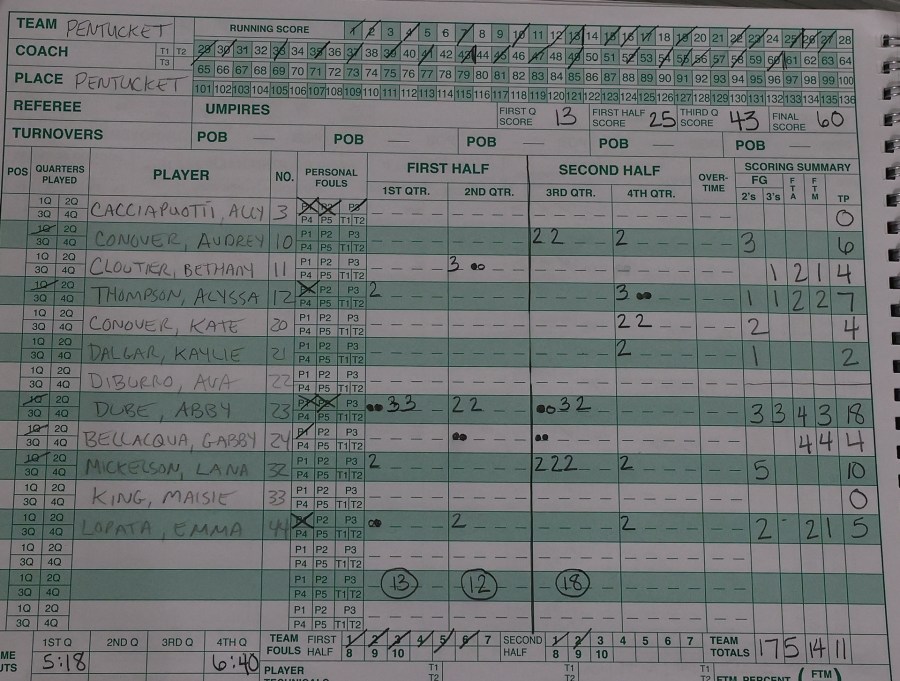 TEAM PENTUCKET RUNNING SCORE 1 2 3 4 5 6 7 8 9 10 11 12 13 14 15 16 17 18 19 20 21 22 23 24 25 26 27 28
COACH T1 T2 T3 29 30 31 32 33 34 35 36 37 38 39 40 41 42 43 44 45 46 47 48 49 50 51 52 53 54 55 56 57 58 59 60 61 62 63 64
65 66 67 68 69 70 71 72 73 74 75 76 77 78 79 80 81 82 83 84 85 86 87 88 89 90 91 92 93 94 95 96 97 98 99 100
PLACE PENTUCKET 101 102 103 104 105 106 107 108 109 110 111 112 113 114 115 116 117 118 119 120 121 122 123 124 125 126 127 128 129 130 131 132 133 134 135 136
REFEREE UMPIRES FIRST Q SCORE 13 FIRST HALF SCORE 25 THIRD Q SCORE 43 FINAL SCORE 60
TURNOVERS POB — POB — POB — POB — POB —
POS QUARTERS PLAYED PLAYER NO. PERSONAL FOULS FIRST HALF SECOND HALF OVER-TIME SCORING SUMMARY
1ST QTR. 2ND QTR. 3RD QTR. 4TH QTR. FG 2's 3's FTA FTM TP
1Q 2Q 3Q 4Q CACCIAPUOTTI, ALLY 3 P1 P2 P3 P4 P5 T1 T2 0
1Q 2Q 3Q 4Q CONOVER, AUDREY 10 P1 P2 P3 P4 P5 T1 T2 2 2 2 3 6
1Q 2Q 3Q 4Q CLOUTIER, BETHANY 11 P1 P2 P3 P4 P5 T1 T2 3 1 2 1 4
1Q 2Q 3Q 4Q THOMPSON, ALYSSA 12 P1 P2 P3 P4 P5 T1 T2 2 3 1 1 2 2 7
1Q 2Q 3Q 4Q CONOVER, KATE 20 P1 P2 P3 P4 P5 T1 T2 2 2 2 4
1Q 2Q 3Q 4Q DALGAR, KAYLIE 21 P1 P2 P3 P4 P5 T1 T2 2 1 2
1Q 2Q 3Q 4Q DIBURRO, AVA 22 P1 P2 P3 P4 P5 T1 T2
1Q 2Q 3Q 4Q DUBE, ABBY 23 P1 P2 P3 P4 P5 T1 T2 3 3 2 2 3 2 3 3 4 3 18
1Q 2Q 3Q 4Q BELLACQUA, GABBY 24 P1 P2 P3 P4 P5 T1 T2 4 4 4
1Q 2Q 3Q 4Q MICKELSON, LANA 32 P1 P2 P3 P4 P5 T1 T2 2 2 2 2 2 5 10
1Q 2Q 3Q 4Q KING, MAISIE 33 P1 P2 P3 P4 P5 T1 T2 0
1Q 2Q 3Q 4Q LOPATA, EMMA 44 P1 P2 P3 P4 P5 T1 T2 2 2 2 2 1 5
1Q 2Q 3Q 4Q P1 P2 P3 P4 P5 T1 T2
1Q 2Q 3Q 4Q P1 P2 P3 P4 P5 T1 T2 13 12 18
1Q 2Q 3Q 4Q P1 P2 P3 P4 P5 T1 T2
1ST Q 2ND Q 3RD Q 4TH Q TEAM FOULS FIRST HALF 1 2 3 4 5 6 7 8 9 10 SECOND HALF 1 2 3 4 5 6 7 8 9 10 TEAM TOTALS 17 5 14 11
5:18 6:40 PLAYER T1 T2 T1 T2 T1 T2 FTM PERCENT (FTM